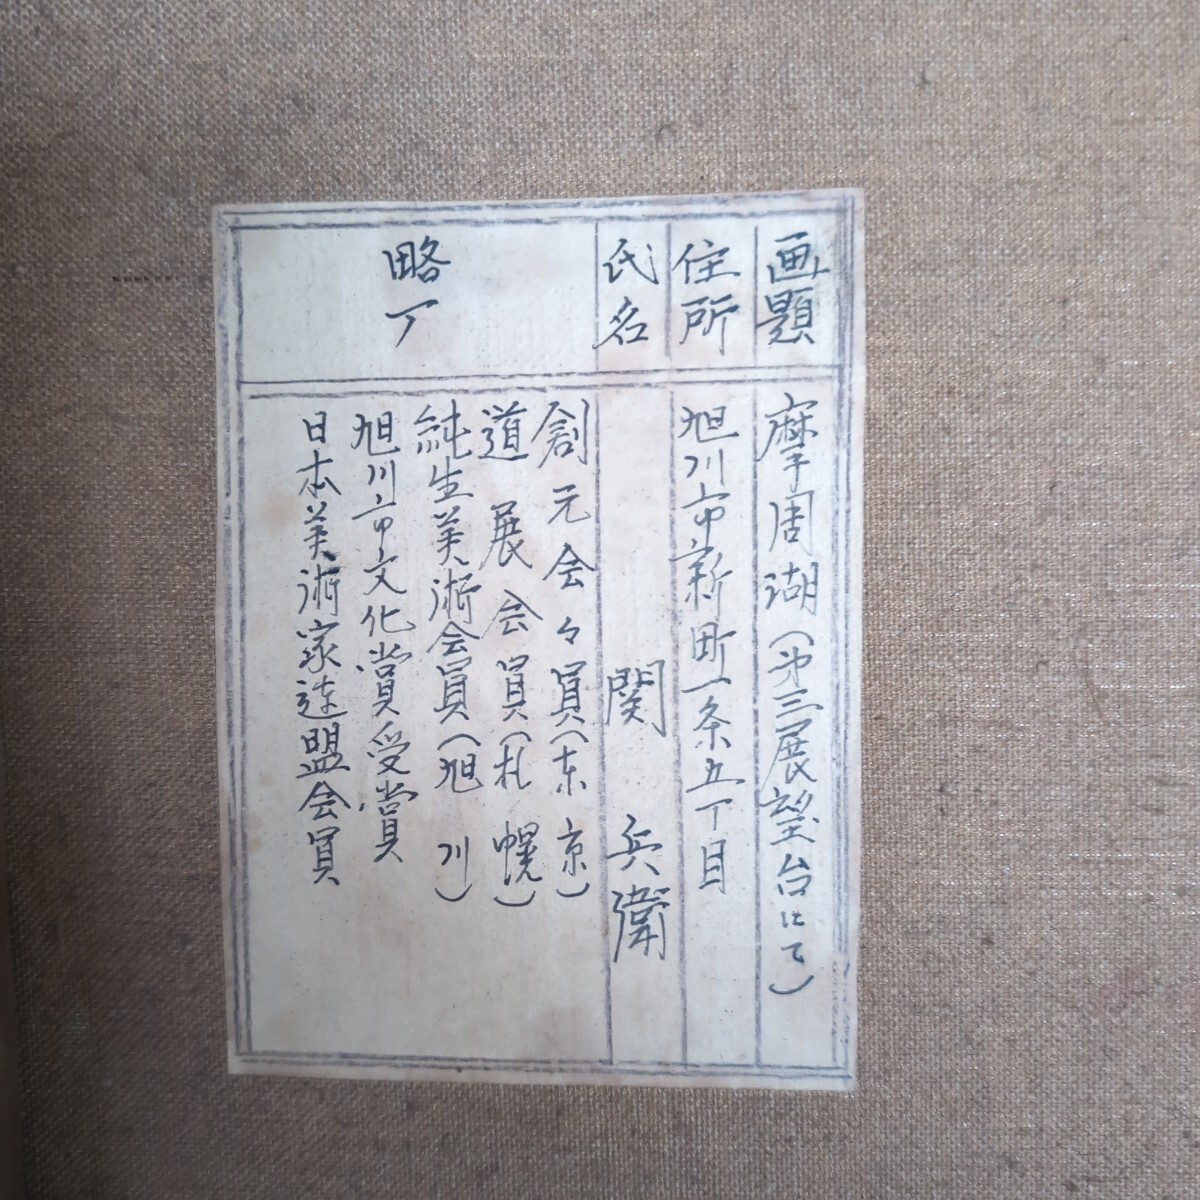 画題
摩周湖(第三展望台にて)
住所
旭川市新町一条五丁目
氏名
関兵衛
略丁
創元会々員(东京)
道展会員(札幌)
純生美術会員(旭川)
旭川市文化賞受賞
日本美術家連盟会員